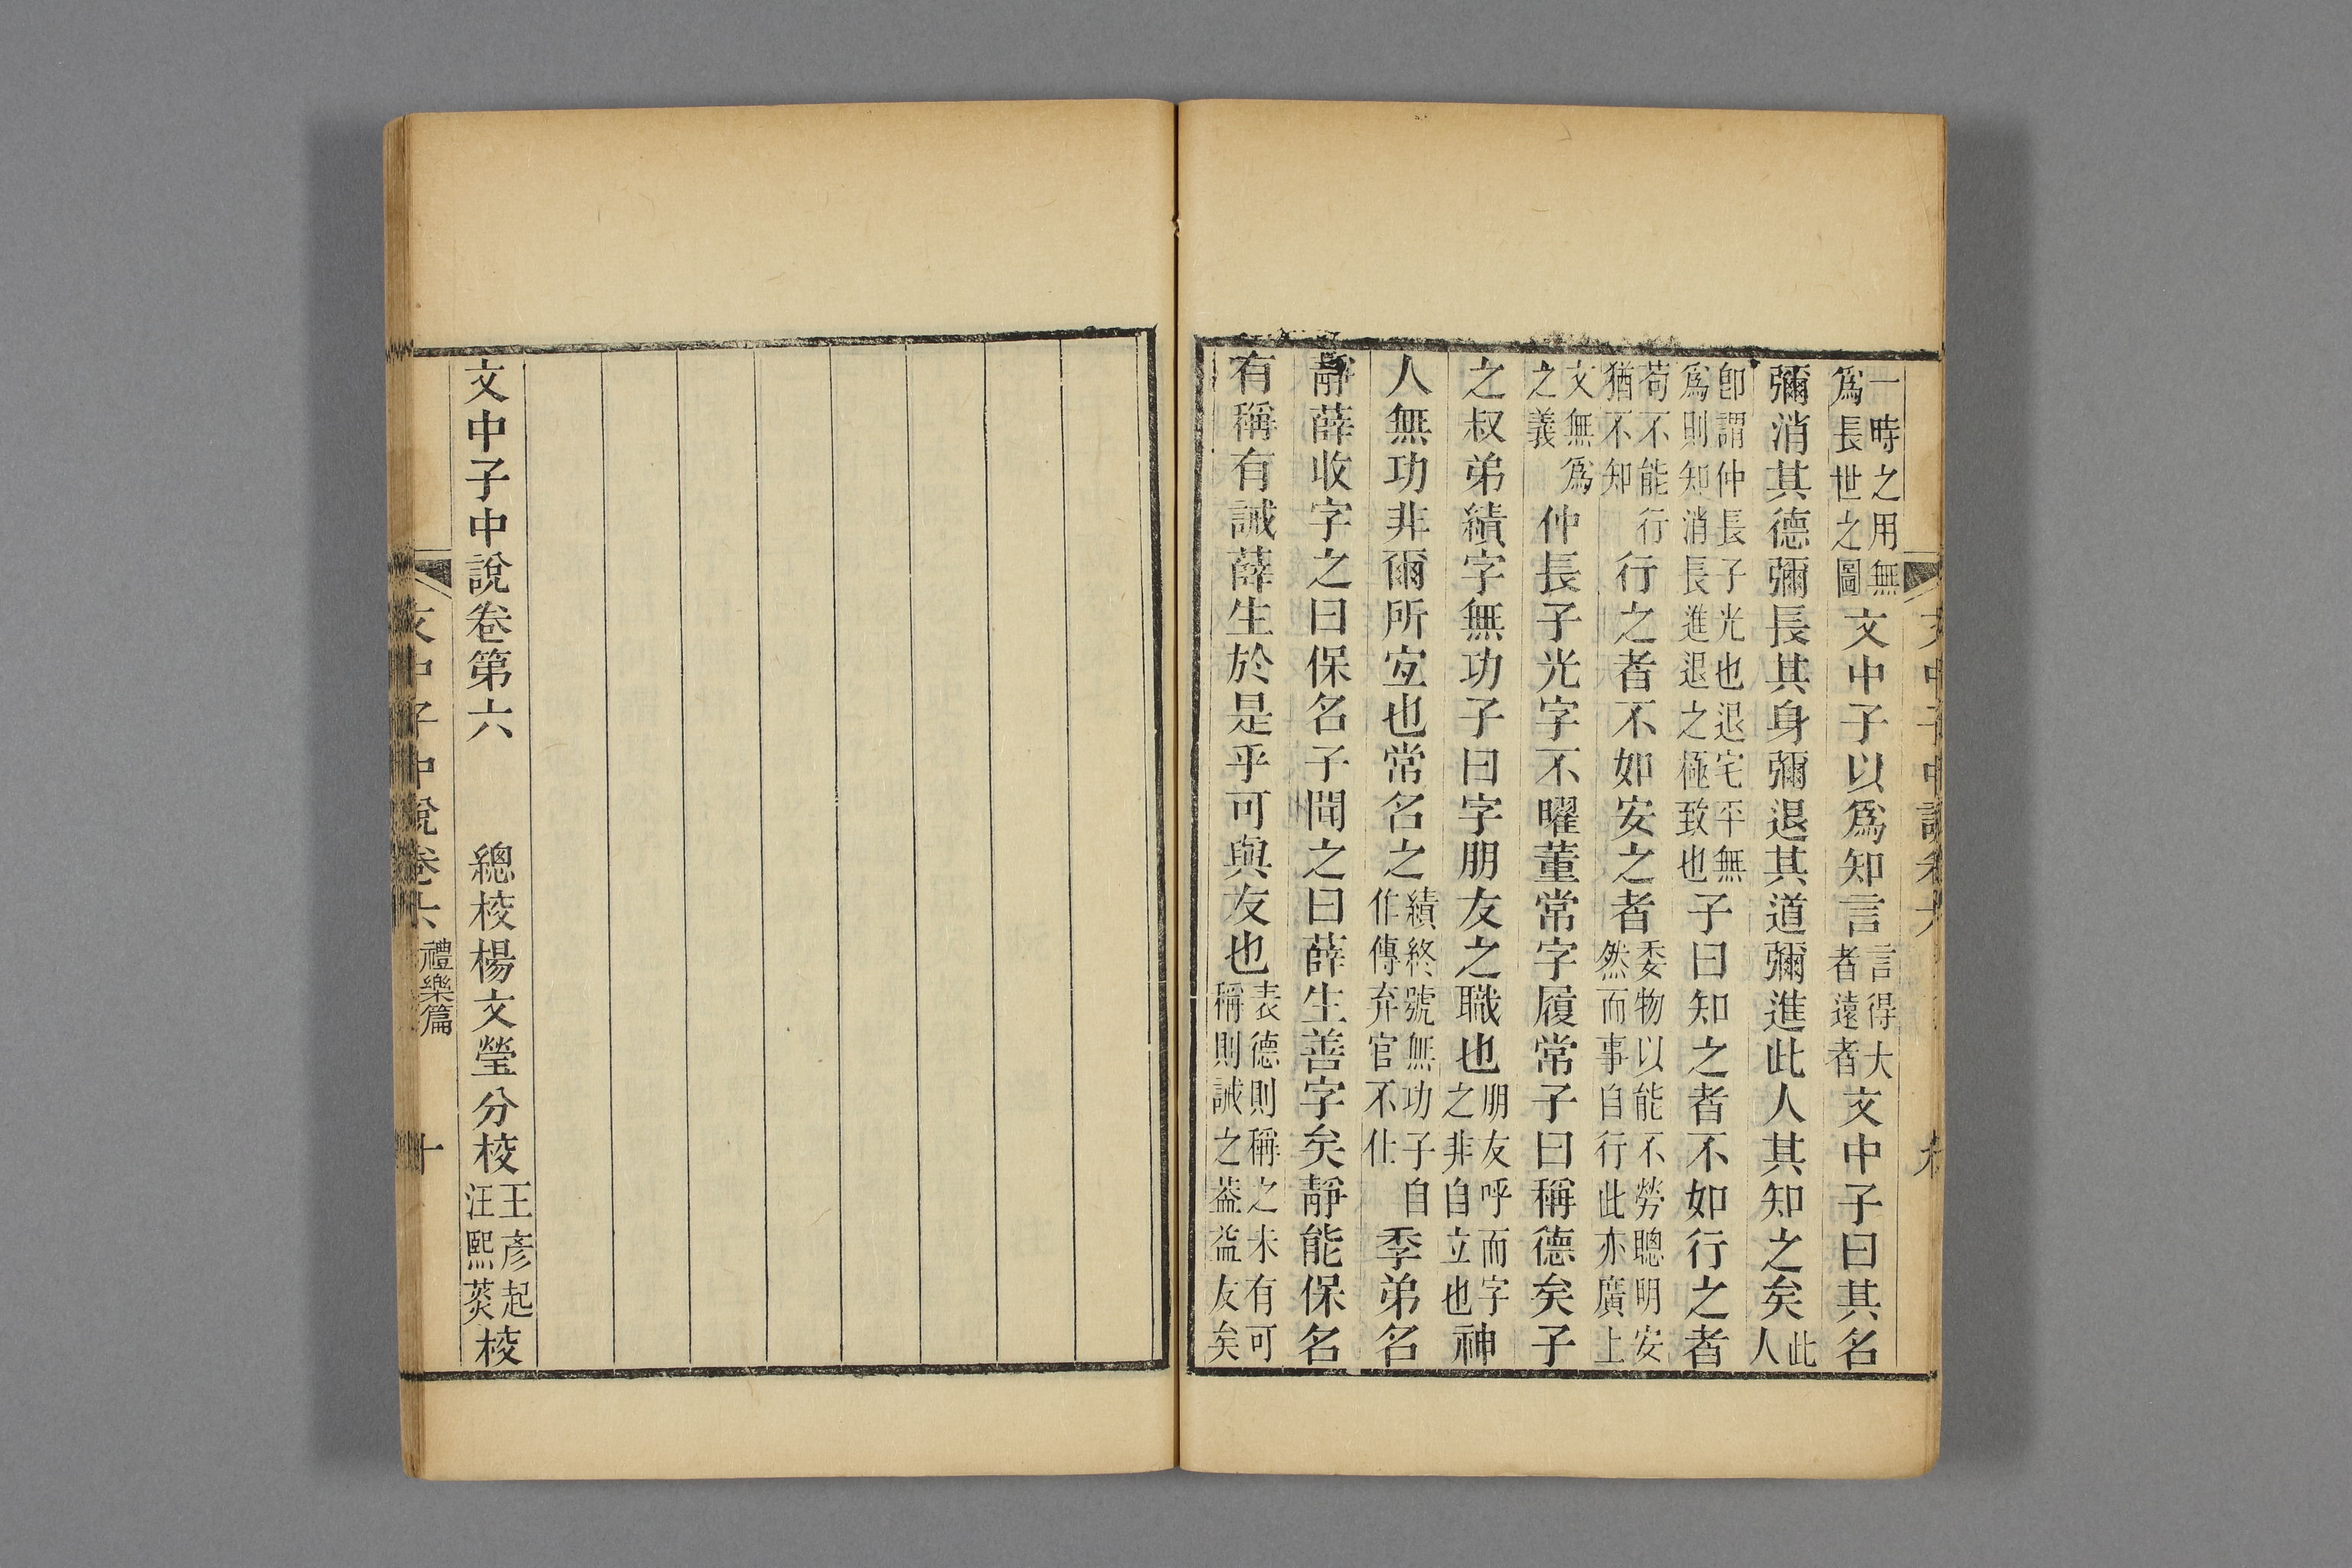 一時之用無爲長世之圖文中子以爲知言言得大者遠者文中子曰其名
彌消其德彌長其身彌退其道彌進此人其知之矣此人
卽謂仲長子光也退宅平無爲則知消長進退之極致也子曰知之者不如行之者
苟不能行猶不知行之者不如安之者委物以能不勞聰明安然而事自行此亦廣上
文無爲之義仲長子光字不曜董常字履常子曰稱德矣子
之叔弟績字無功子曰字朋友之職也朋友呼而字之非自立也神
人無功非爾所宐也常名之績終號無功子自作傳弃官不仕季弟名
靜薛收字之曰保名子聞之曰薛生善字矣靜能保名
有稱有誡薛生於是乎可與友也表德則稱之未有可稱則誡之葢益友矣
文中子中說卷第六 總校楊文瑩分校王彥起汪熙菼校
文中子中說卷六 禮樂篇 十